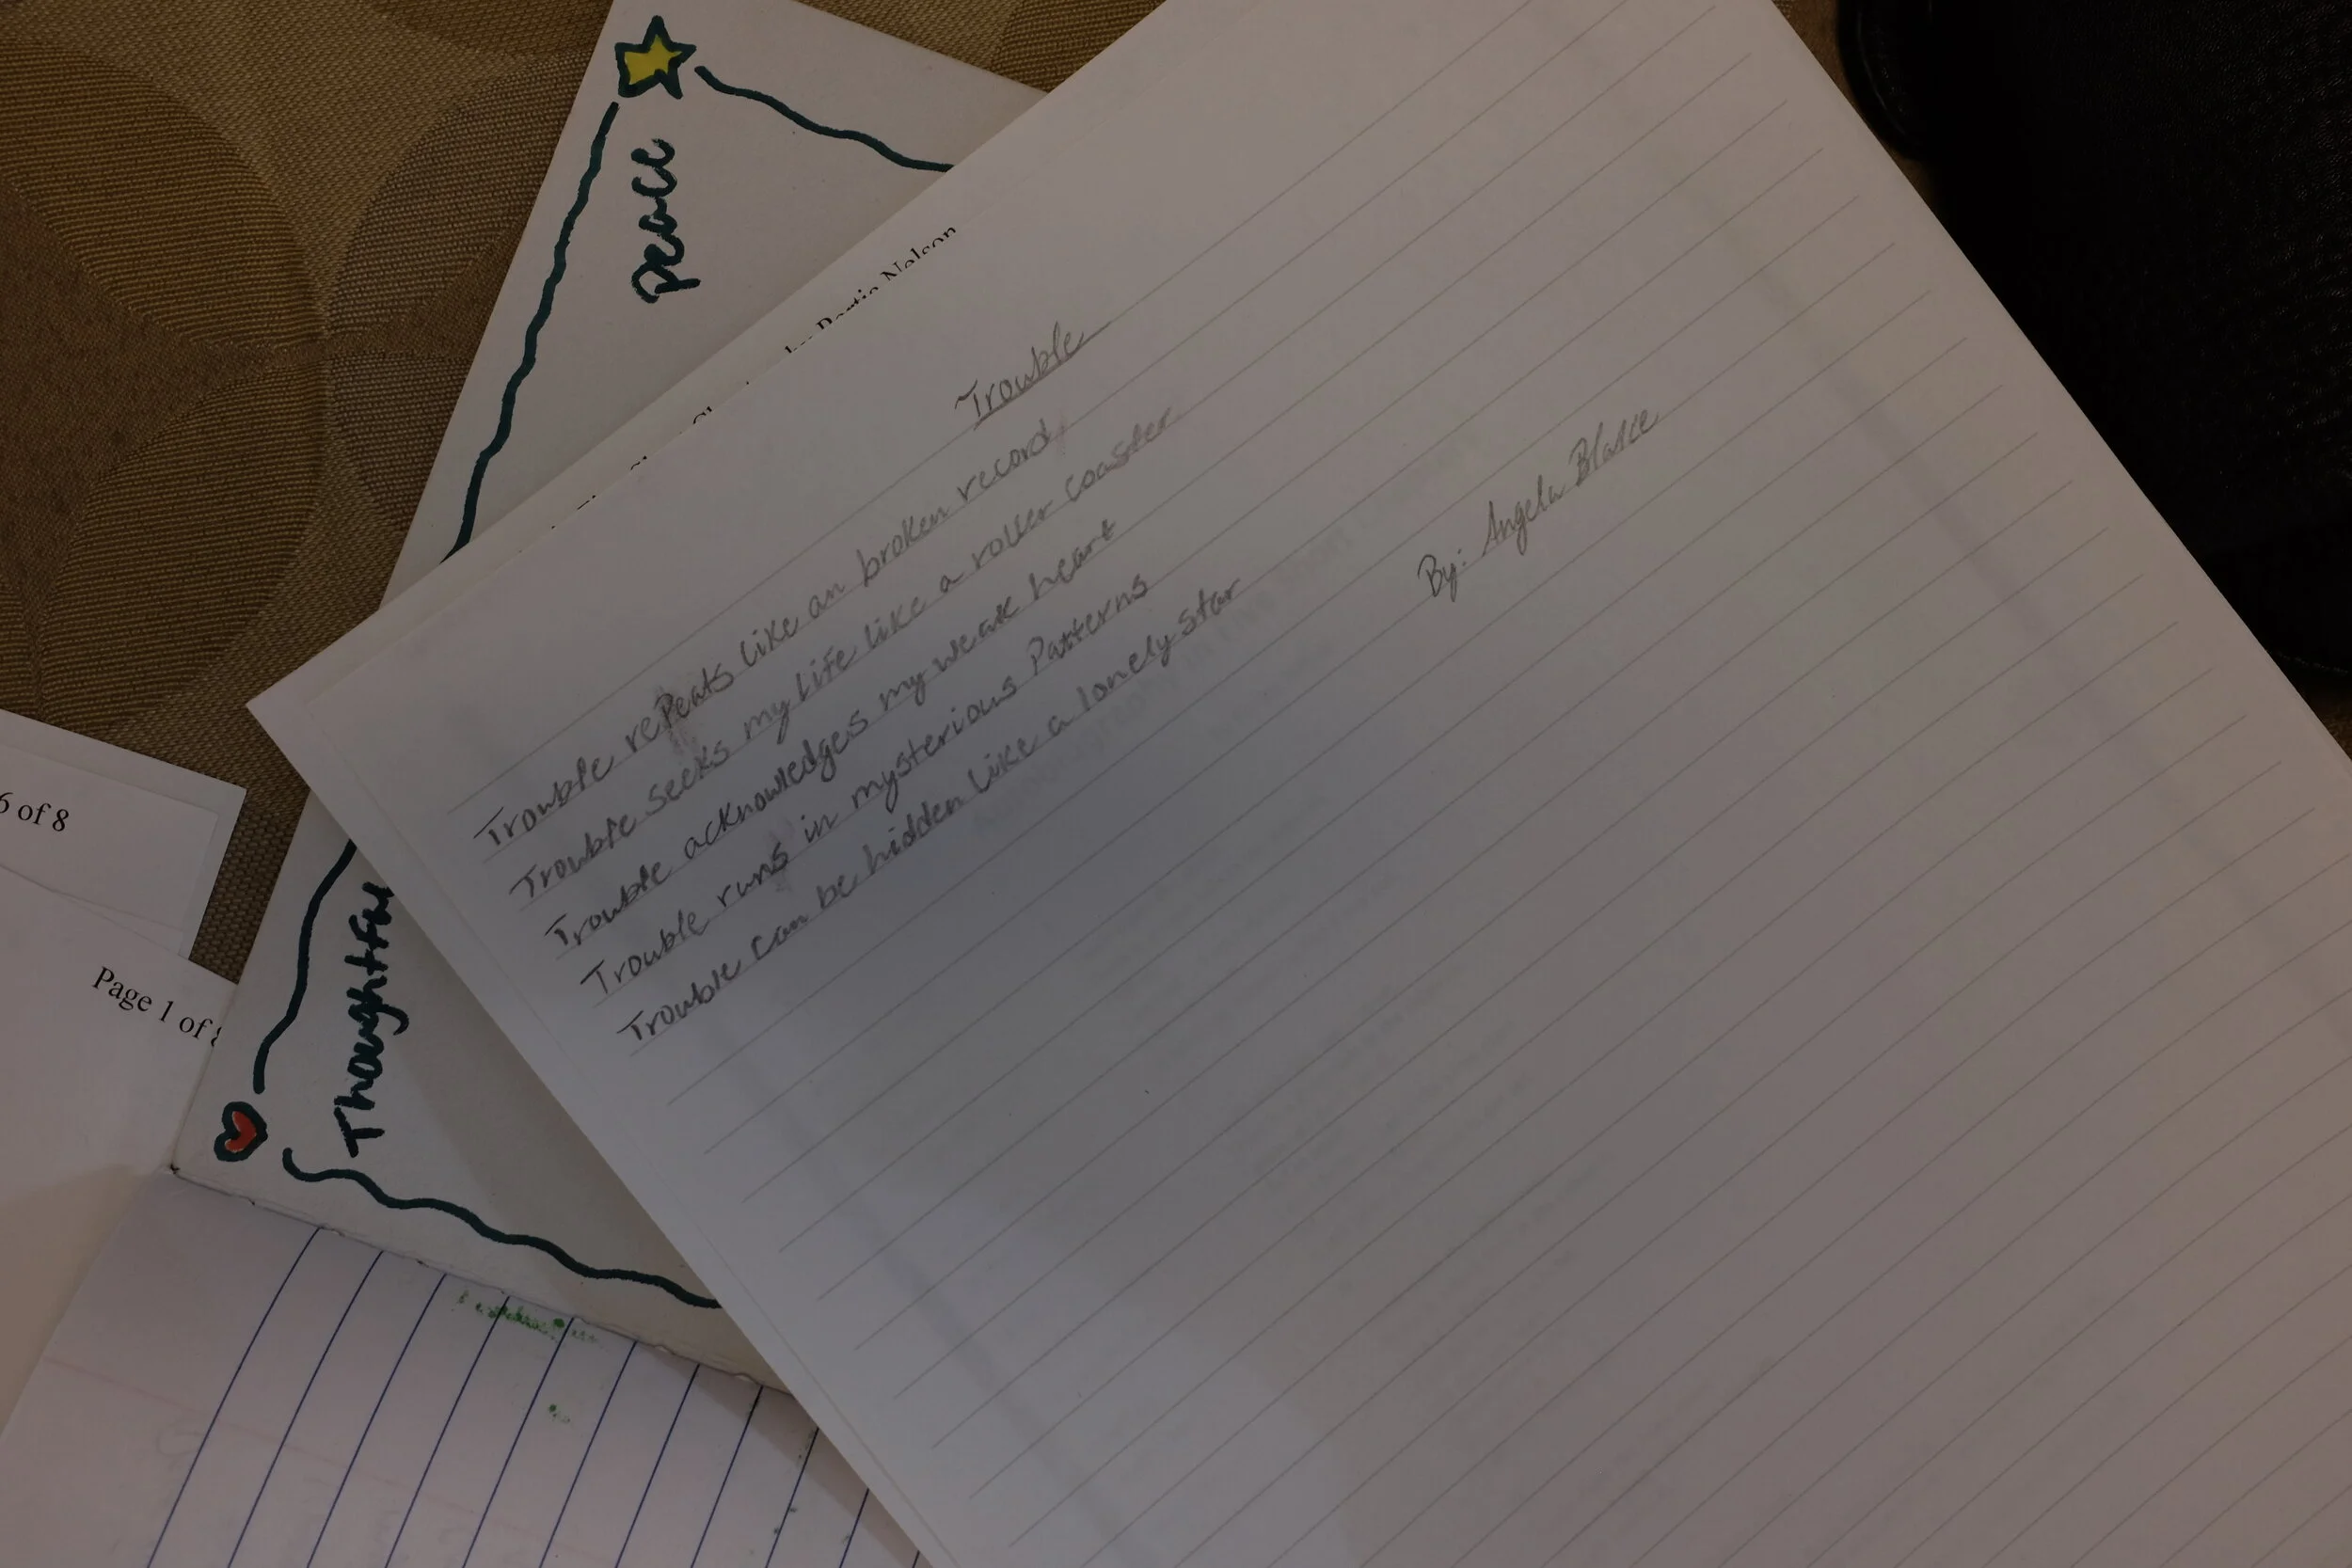 peace
Portia Nelson
Trouble
Trouble repeats like an broken record
Trouble seeks my life like a roller coaster
Trouble acknowledges my weak heart
Trouble runs in mysterious Patterns
Trouble can be hidden like a lonely star
By: Angela Blake
6 of 8
Page 1 of 8
Thoughtful